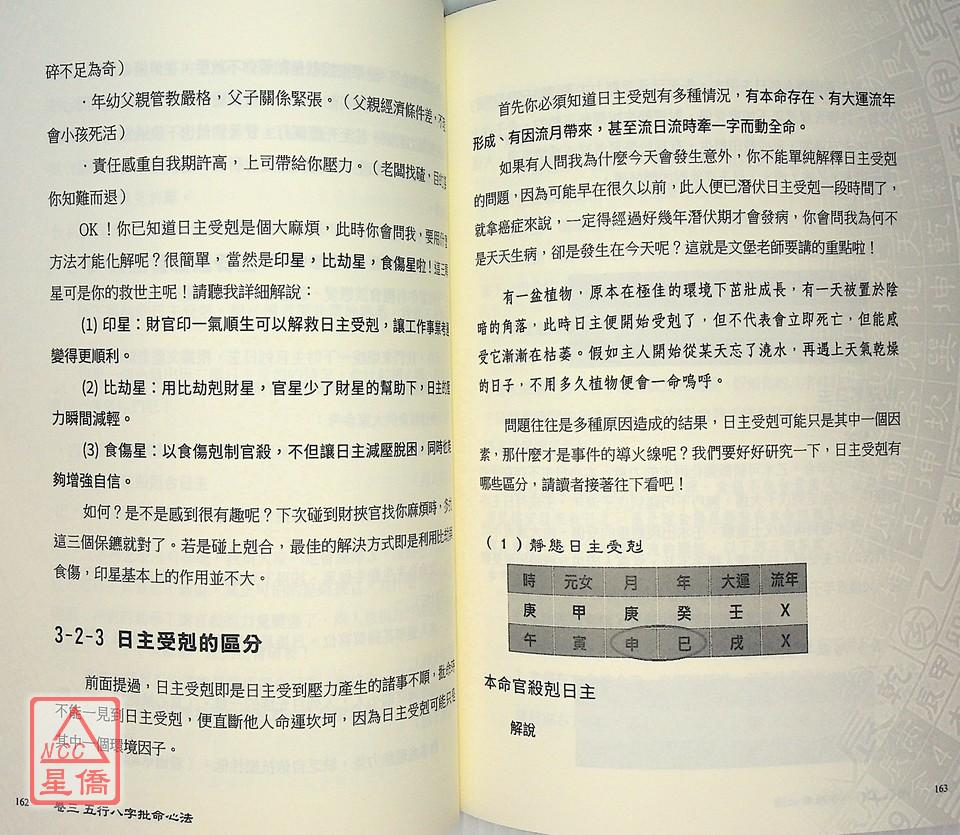 碎不足為奇)
‧年幼父親管教嚴格，父子關係緊張。(父親經濟條件差，不
會小孩死活)
‧責任感重自我期許高，上司帶給你壓力。(老闆找碴，
你知難而退)
OK！你已知道日主受剋是個大麻煩，此時你會問我，要用
方法才能化解呢？很簡單，當然是印星，比劫星，食傷星啦！這三
星可是你的救世主呢！請聽我詳細解說：
(1) 印星：財官印一氣順生可以解救日主受剋，讓工作事業
變得更順利。
(2) 比劫星：用比劫剋財星，官星少了財星的幫助下，日主
力瞬間減輕。
(3) 食傷星：以食傷剋制官殺，不但讓日主減壓脫困，同時也
夠增強自信。
如何？是不是感到很有趣呢？下次碰到財挾官找你麻煩時，
這三個保鑣就對了。若是碰上剋合，最佳的解決方式即是利用比劫
食傷，印星基本上的作用並不大。
3-2-3 日主受剋的區分
前面提過，日主受剋即是日主受到壓力產生的諸事不順，批命
不能一見到日主受剋，便直斷他人命運坎坷，因為日主受剋可能只
其中一個環境因子。
NCC
星僑
162 卷三 五行八字批命心法
首先你必須知道日主受剋有多種情況，有本命存在、有大運流年
形成、有因流月帶來，甚至流日流時牽一字而動全命。
如果有人問我為什麼今天會發生意外，你不能單純解釋日主受剋
的問題，因為可能早在很久以前，此人便已潛伏日主受剋一段時間了，
就拿癌症來說，一定得經過好幾年潛伏期才會發病，你會問我為何不
是天天生病，卻是發生在今天呢？這就是文堡老師要講的重點啦！
有一盆植物，原本在極佳的環境下茁壯成長，有一天被置於陰
暗的角落，此時日主便開始受剋了，但不代表會立即死亡，但能感
受它漸漸在枯萎。假如主人開始從某天忘了澆水，再遇上天氣乾燥
的日子，不用多久植物便會一命嗚呼。
問題往往是多種原因造成的結果，日主受剋可能只是其中一個因
素，那什麼才是事件的導火線呢？我們要好好研究一下，日主受剋有
哪些區分，請讀者接著往下看吧！
(1) 靜態日主受剋
時 元女 月 年 大運 流年
庚 甲 庚 癸 壬 X
午 寅 申 巳 戌 X
本命官殺剋日主
解說
163